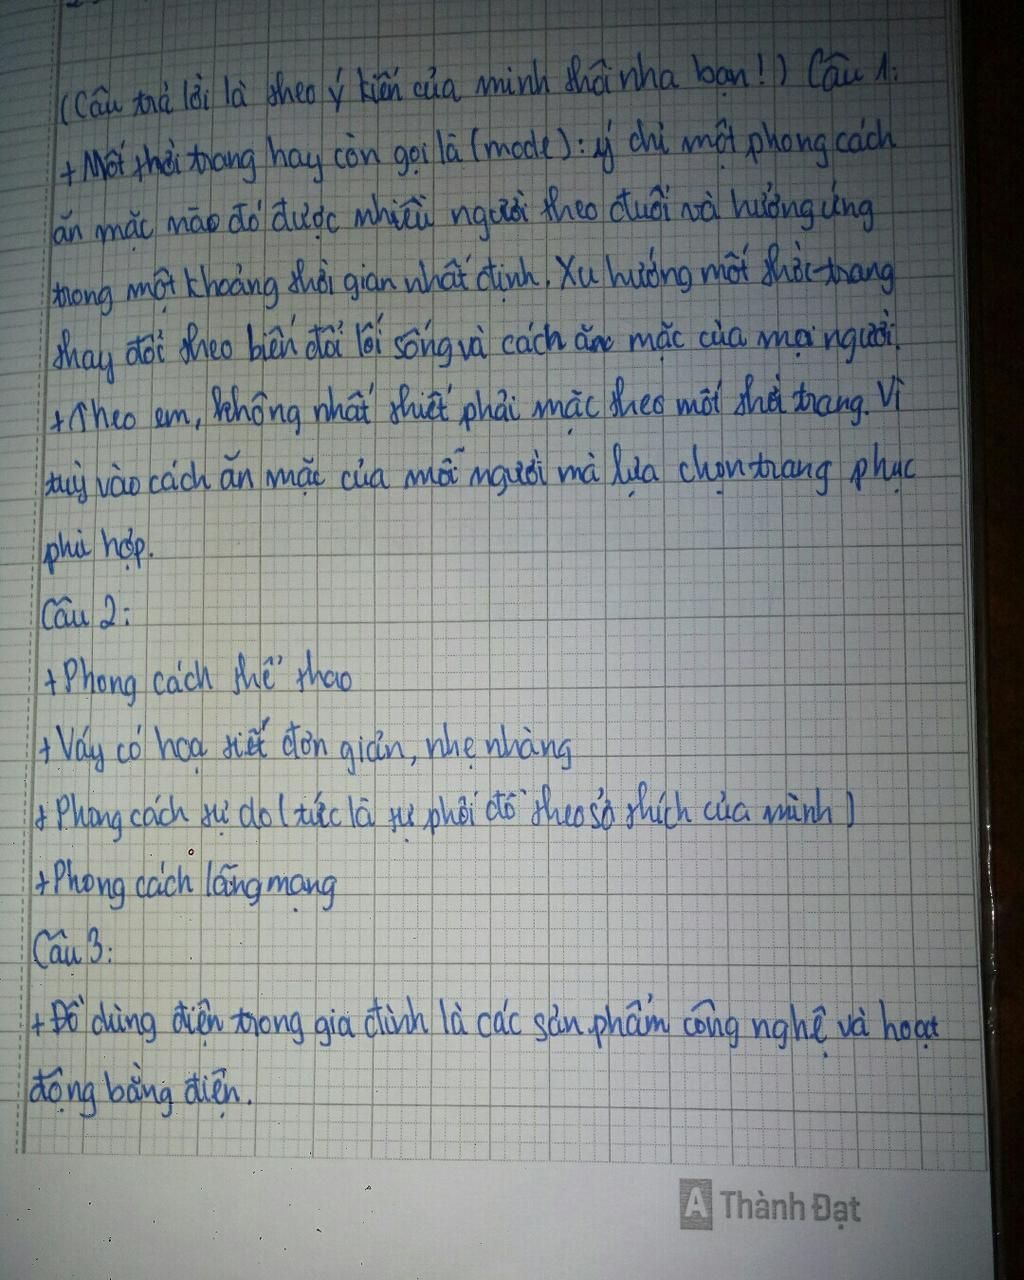 (Câu trả lời là theo ý kiến của mình thôi nha bạn!) Câu 1:
+ Mốt thời trang hay còn gọi là (mode): ý chỉ một phong cách
ăn mặc nào đó được nhiều người theo đuổi và hưởng ứng
trong một khoảng thời gian nhất định. Xu hướng mốt thời trang
thay đổi theo biến đổi lối sống và cách ăn mặc của mọi người.
+ Theo em, không nhất thiết phải mặc theo mốt thời trang. Vì
tuỳ vào cách ăn mặc của mỗi người mà lựa chọn trang phục
phù hợp.
Câu 2:
+ Phong cách thể thao
+ Váy có hoạ tiết đơn giản, nhẹ nhàng
+ Phong cách tự do (tức là tự phối đồ theo sở thích của mình)
+ Phong cách lãng mạng
Câu 3:
+ Đồ dùng điện trong gia đình là các sản phẩm công nghệ và hoạt
động bằng điện.
A Thành Đạt